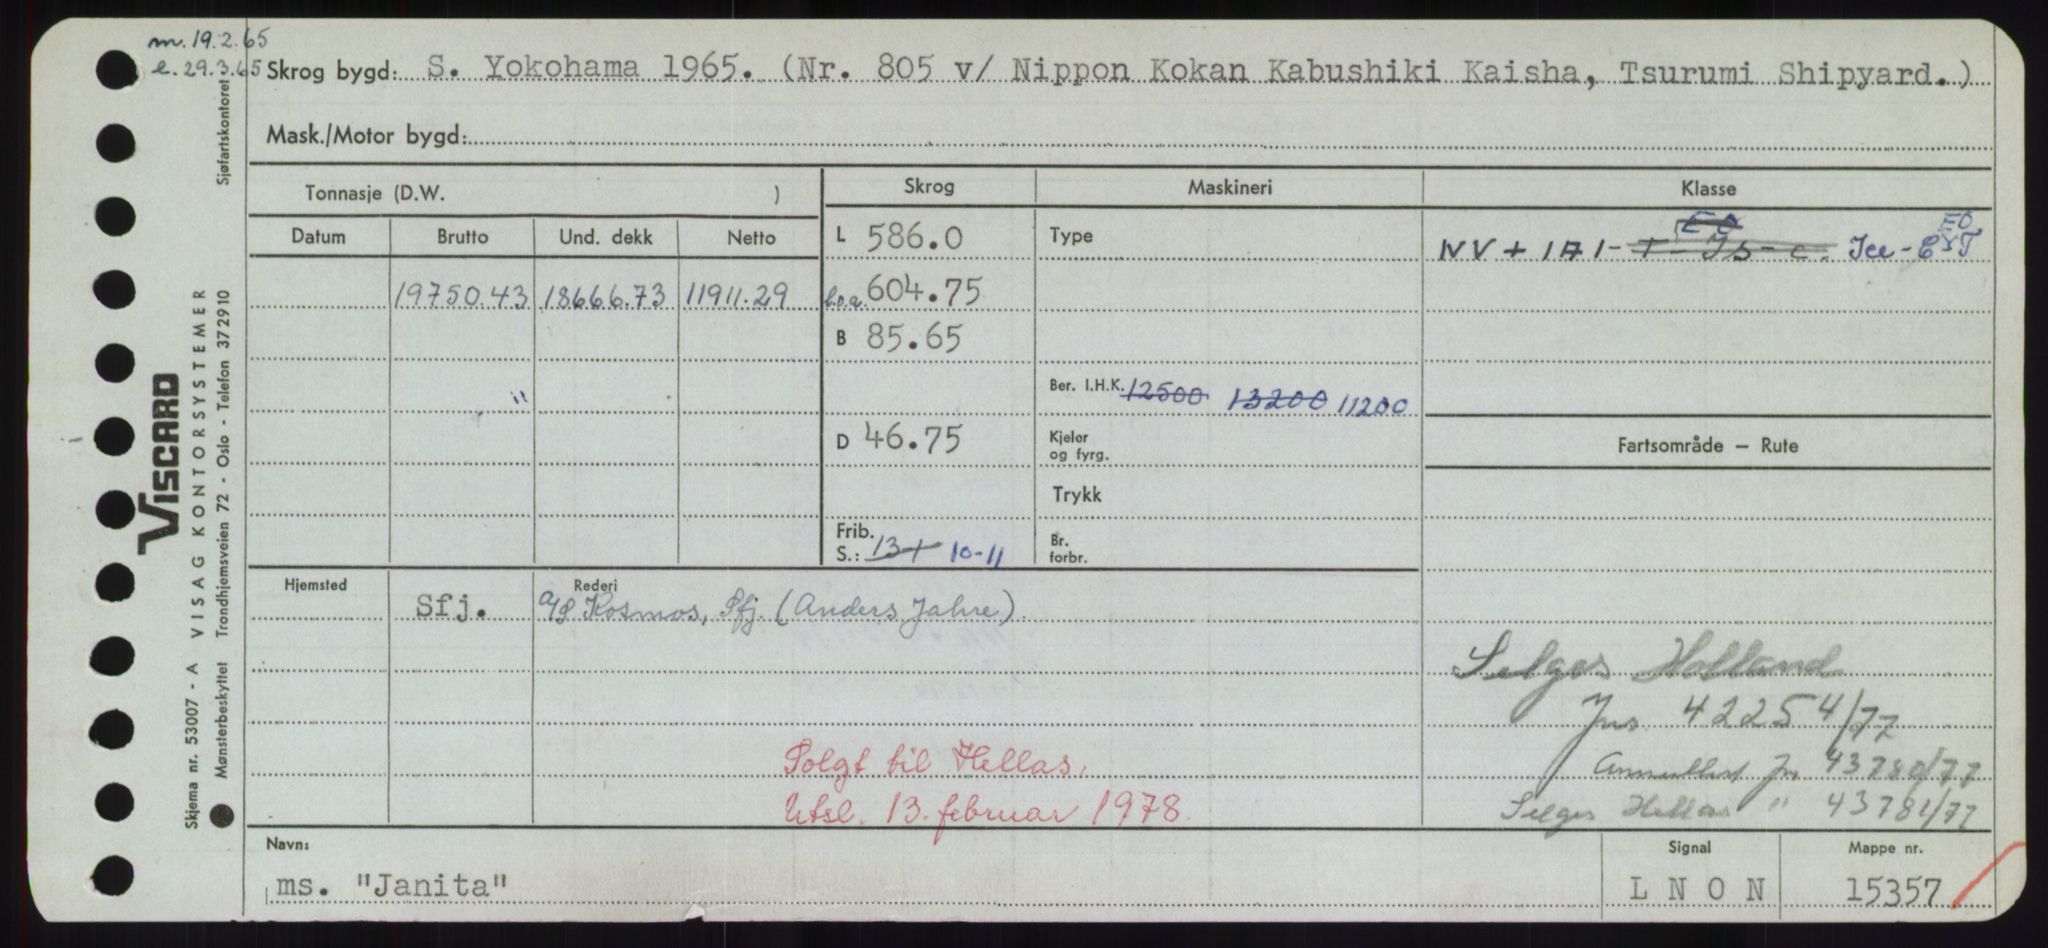 m. 19.2.65
e. 29.3.65
Skrog bygd: S. Yokohama 1965. (Nr. 805 v/ Nippon Kokan Kabushiki Kaisha, Tsurumi Shipyard.)
Mask./Motor bygd:
Tonnasje (D.W. )
Skrog Maskineri Klasse
Datum Brutto Und. dekk Netto
L 586.0
Type
EO
NV + 1A1 - T - Is - c. Ice - C
EO
19750.43 18666.73 11911.29
l.o.a. 604.75
B 85.65
"
Ber. I.H.K. 12500 13200 11200
D 46.75
Kjeler og fyrg.
Fartsområde – Rute
Trykk
Frib. S.: 13+ 10-11
Br. forbr.
Hjemsted Rederi
Sfj. A/S Kosmos, Sfj. (Anders Jahre)
Selges Holland
Jns 42254/77
Solgt til Hellas.
Annullert Jn 43780/77
Utsl. 13. februar 1978.
Selges Hellas " 43781/77
Navn: Signal Mappe nr.
ms. "Janita" L N O N 15357
VISCARD
Skjema nr. 53007 - A VISAG KONTORSYSTEMER
Mønsterbeskyttet Trondhjemsveien 72 - Oslo - Telefon 372910 Sjøfartskontoret